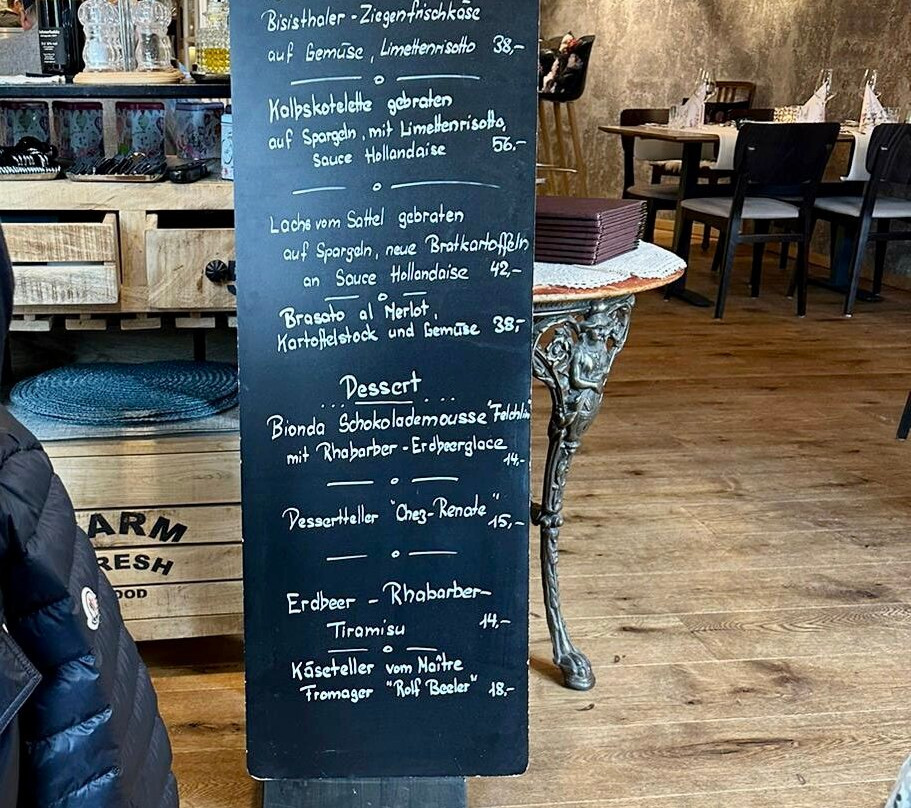 Bisisthaler - Ziegenfrischkäse
auf Gemüse, Limettenrisotto 38,-
Kalbskotelette gebraten
auf Spargeln, mit Limettenrisotto,
Sauce Hollandaise 56,-
Lachs vom Sattel gebraten
auf Spargeln, neue Bratkartoffeln
an Sauce Hollandaise 42,-
Brasato al Merlot,
Kartoffelstock und Gemüse 38,-
Dessert
Bionda Schokolademousse "Felchlin"
mit Rhabarber - Erdbeerglace
14,-
Dessertteller "Chez-Renate" 15,-
Erdbeer - Rhabarber-
Tiramisu 14,-
Käseteller vom Maître
Fromager "Rolf Beeler" 18,-
ARM
RESH
OOD